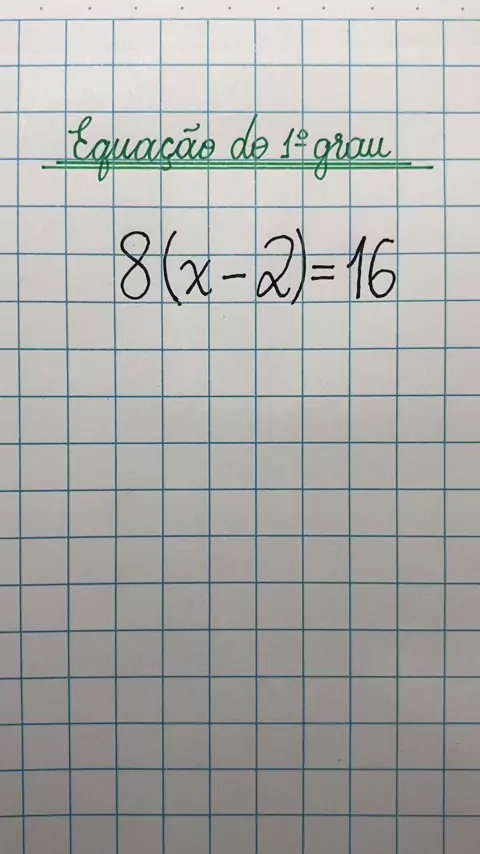 Equação do 1º grau
8(x-2)=16